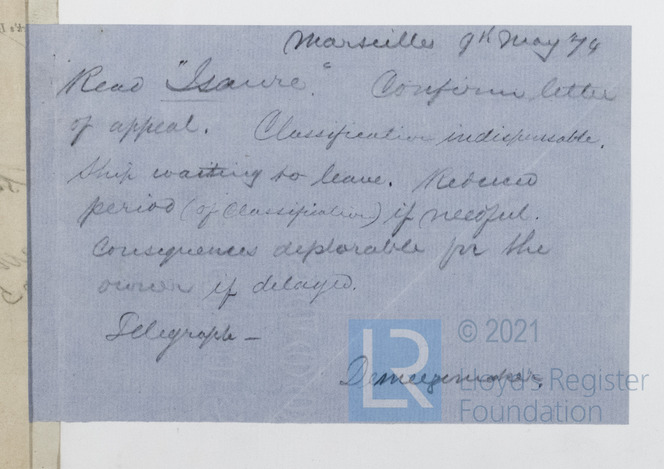 Marseilles 9th May 79
Read "Isaure". Confirm letter
of appeal. Classification indispensable.
Ship waiting to leave. Reduced
period (of classification) if needful.
Consequences deplorable for the
owner if delayed.
Telegraph —
LR
© 2021
Lloyd's Register
Foundation